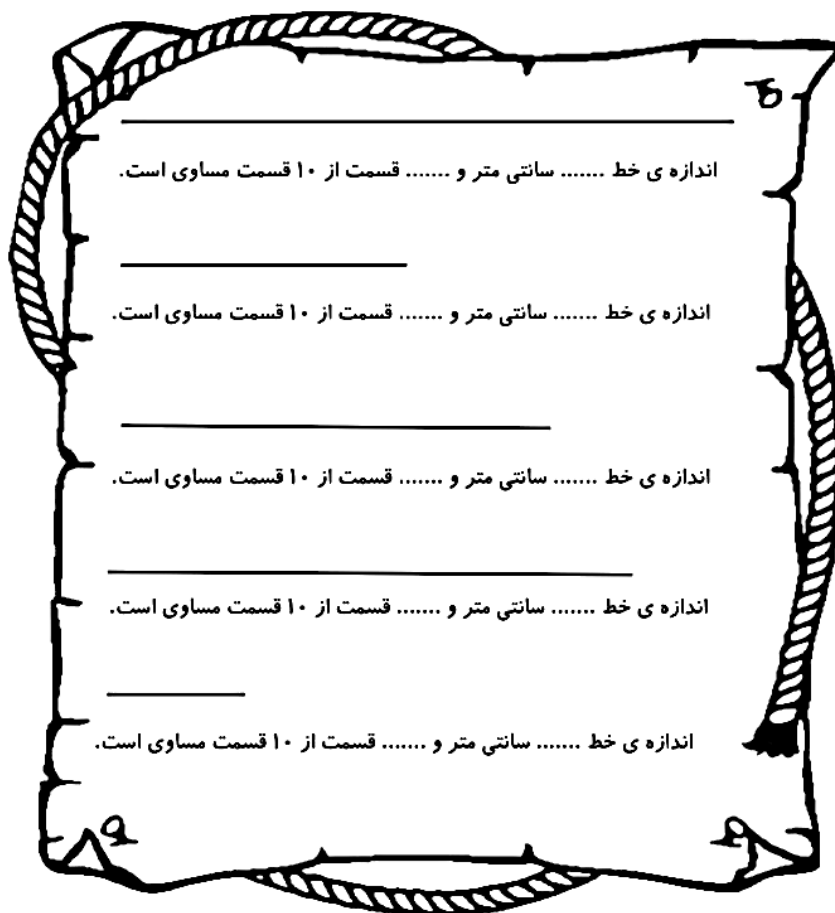 اندازه ی خط ....... سانتی متر و ....... قسمت از ۱۰ قسمت مساوی است.
اندازه ی خط ....... سانتی متر و ....... قسمت از ۱۰ قسمت مساوی است.
اندازه ی خط ....... سانتی متر و ....... قسمت از ۱۰ قسمت مساوی است.
اندازه ی خط ....... سانتی متر و ....... قسمت از ۱۰ قسمت مساوی است.
اندازه ی خط ....... سانتی متر و ....... قسمت از ۱۰ قسمت مساوی است.